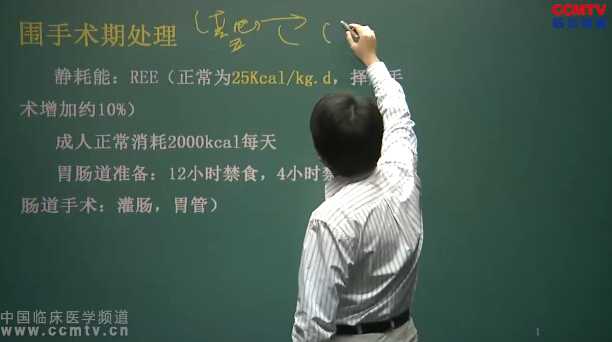 CCMTV
围手术期处理
静耗能：REE（正常为25Kcal/kg.d，择
术增加约10%）
成人正常消耗2000kcal每天
胃肠道准备：12小时禁食，4小时禁
肠道手术：灌肠，胃管）
中国临床医学频道
www.ccmtv.cn
1